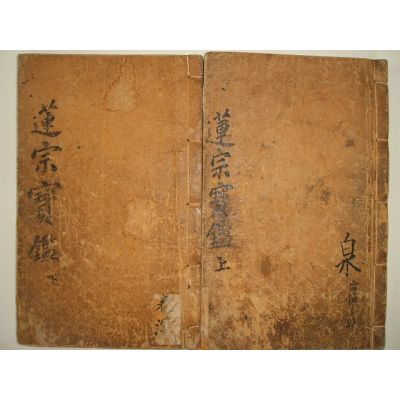 蓮宗寳鑑 上
泉
蓮宗寳鑑 下